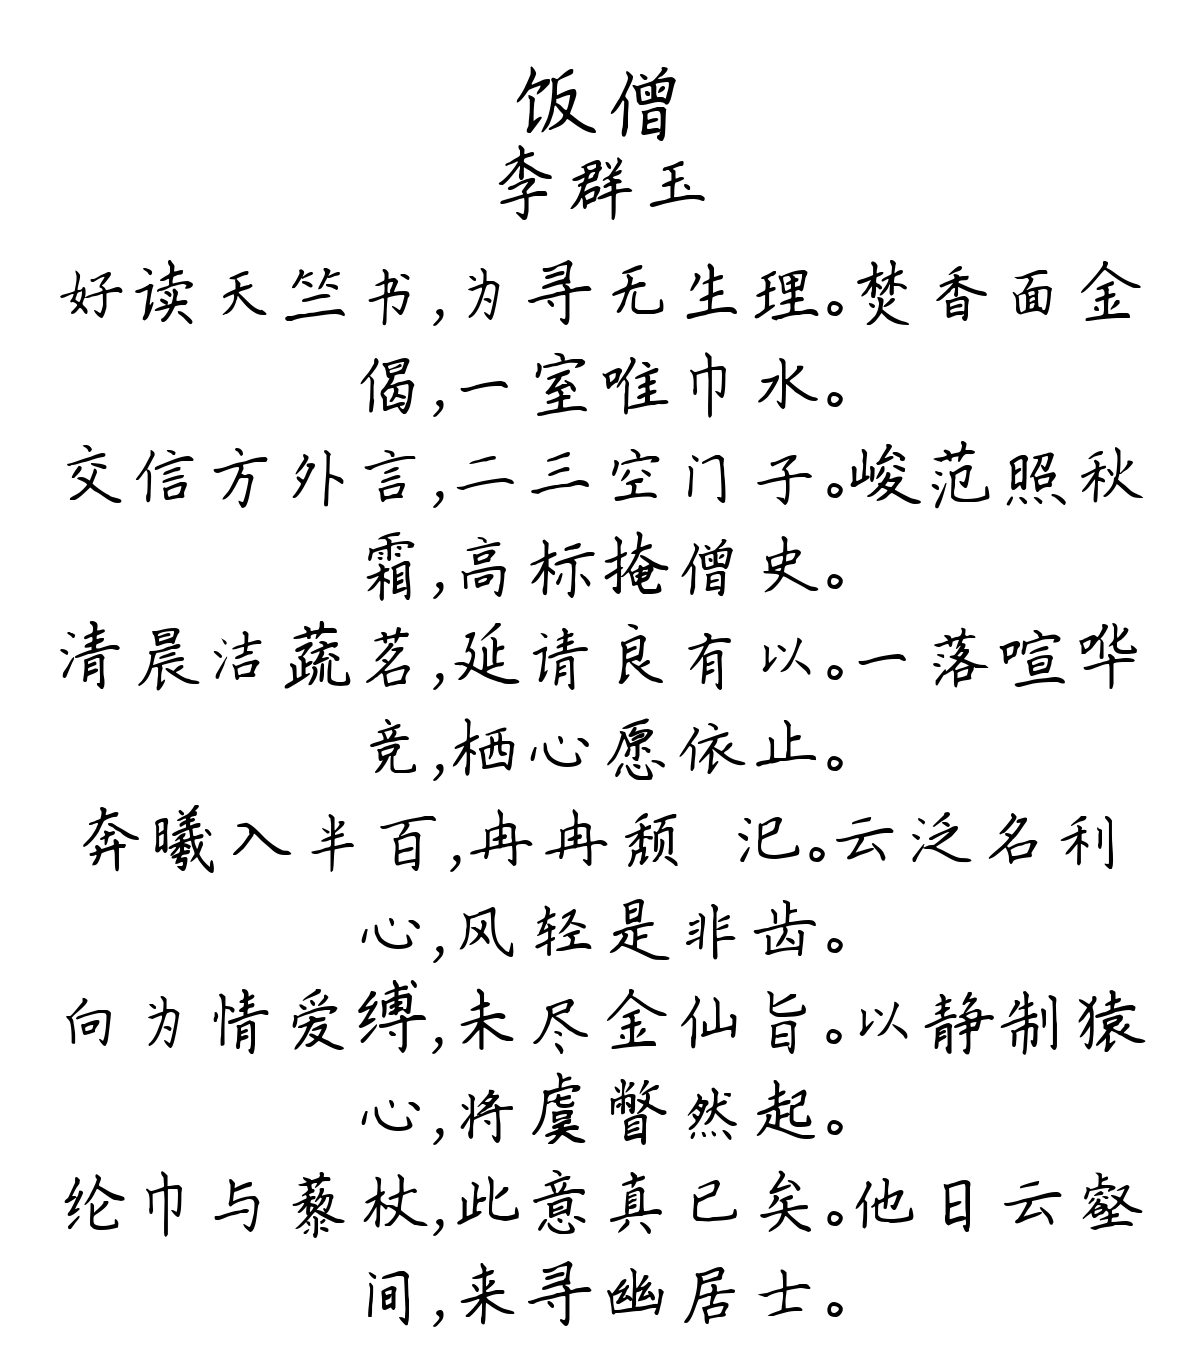 饭僧
李群玉
好读天竺书,为寻无生理。焚香面金
偈,一室唯巾水。
交信方外言,二三空门子。峻范照秋
霜,高标掩僧史。
清晨洁蔬茗,延请良有以。一落喧哗
竞,栖心愿依止。
奔曦入半百,冉冉颓 汜。云泛名利
心,风轻是非齿。
向为情爱缚,未尽金仙旨。以静制猿
心,将虞瞥然起。
纶巾与藜杖,此意真已矣。他日云壑
间,来寻幽居士。